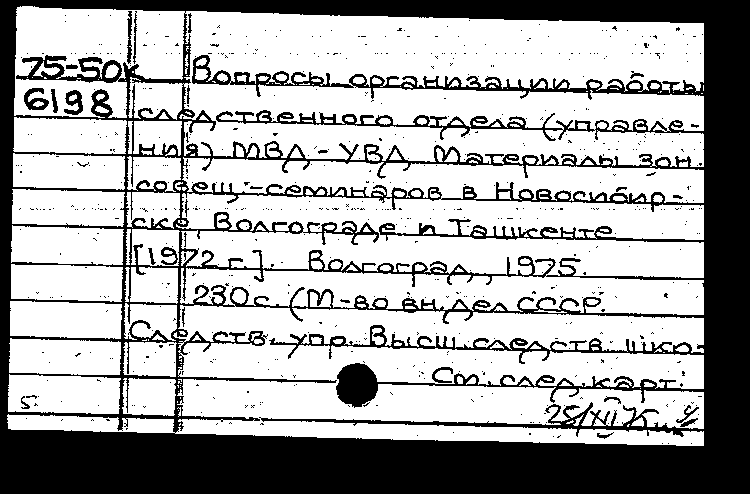 75-50к Вопросы организации работы
6198 следственного отдела (управле-
ния) МВД-УВД. Материалы зон.
совещ.-семинаров в Новосибир-
ске, Волгограде и Ташкенте
[1972 г.]. Волгоград, 1975.
230 с. (М-во вн. дел СССР.
Следств. упр. Высш. следств. шко-
См. след. карт.
5 25/XII